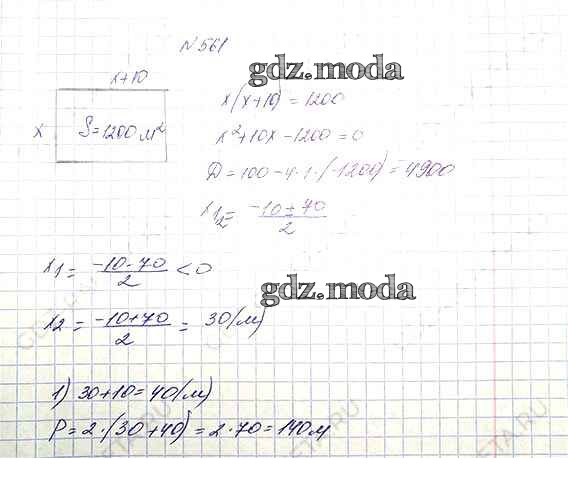 №561
gdz.moda
x+10
x(x+10) = 1200
x S=1200 м²
x²+10x-1200=0
D=100-4·1·(-1200)=4900
x1,2= -10±70/2
x1= -10-70/2 <0
gdz.moda
x2= -10+70/2 = 30(м)
1) 30+10=40(м)
P=2·(30+40)=2·70=140м